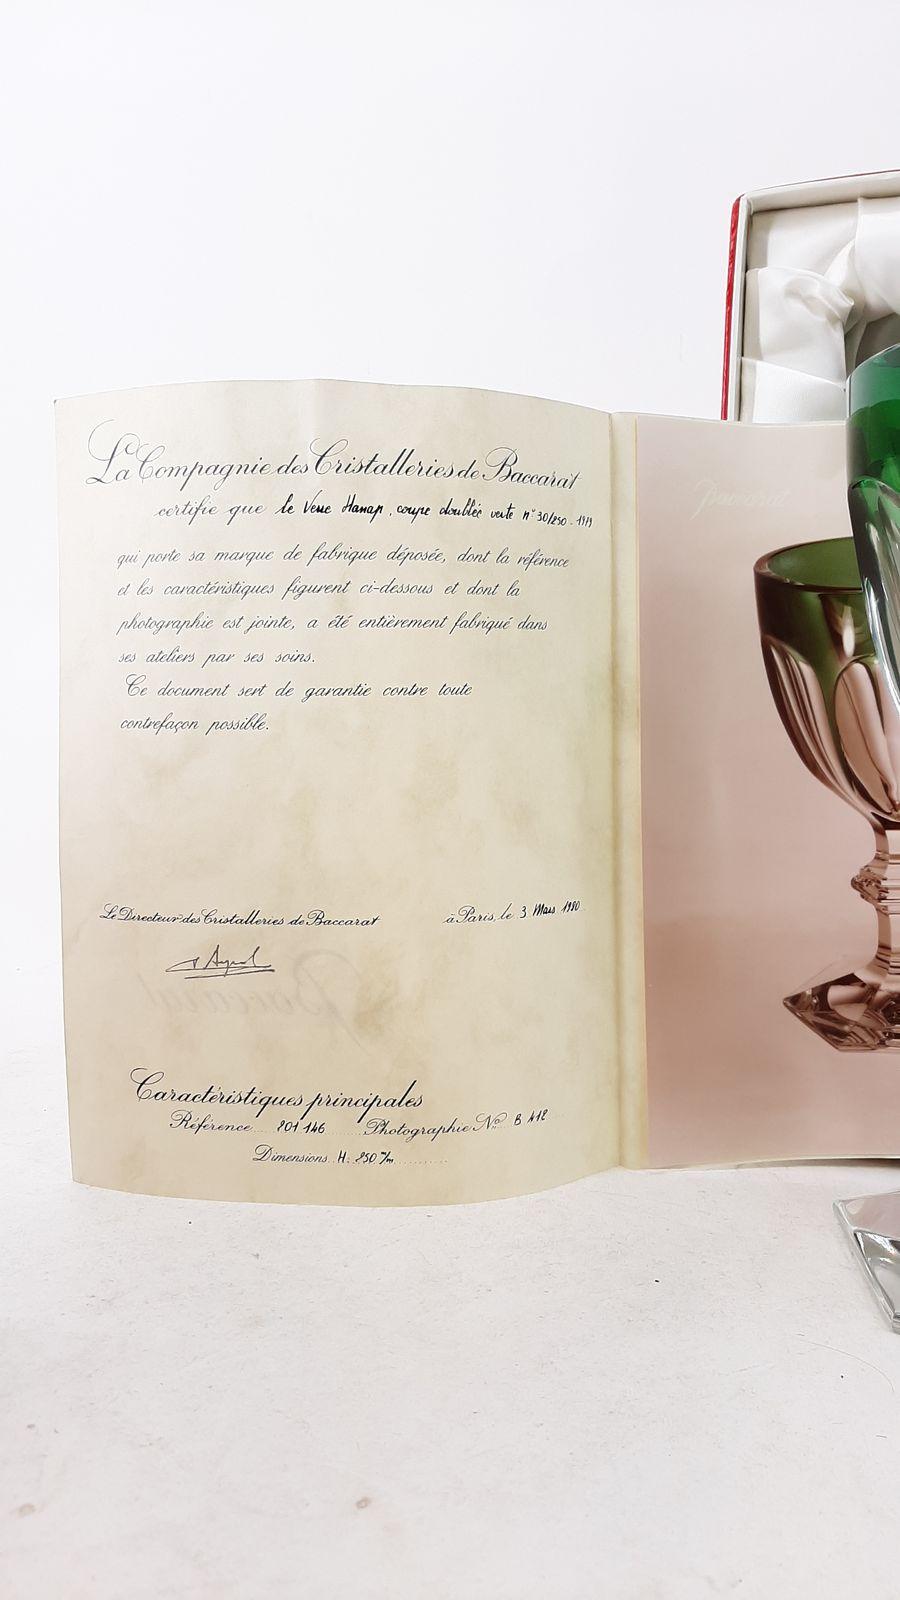 La Compagnie des Cristalleries de Baccarat
certifie que le Verre Hanap, coupe doublée verte n° 30/250 - 1979
qui porte sa marque de fabrique déposée, dont la référence
et les caractéristiques figurent ci-dessous et dont la
photographie est jointe, a été entièrement fabriqué dans
ses ateliers par ses soins.
Ce document sert de garantie contre toute
contrefaçon possible.
Le Directeur des Cristalleries de Baccarat à Paris, le 3 Mars 1980
Baccarat
Caractéristiques principales
Référence 801 146 Photographie No B 412
Dimensions H. 250 m/m
Baccarat